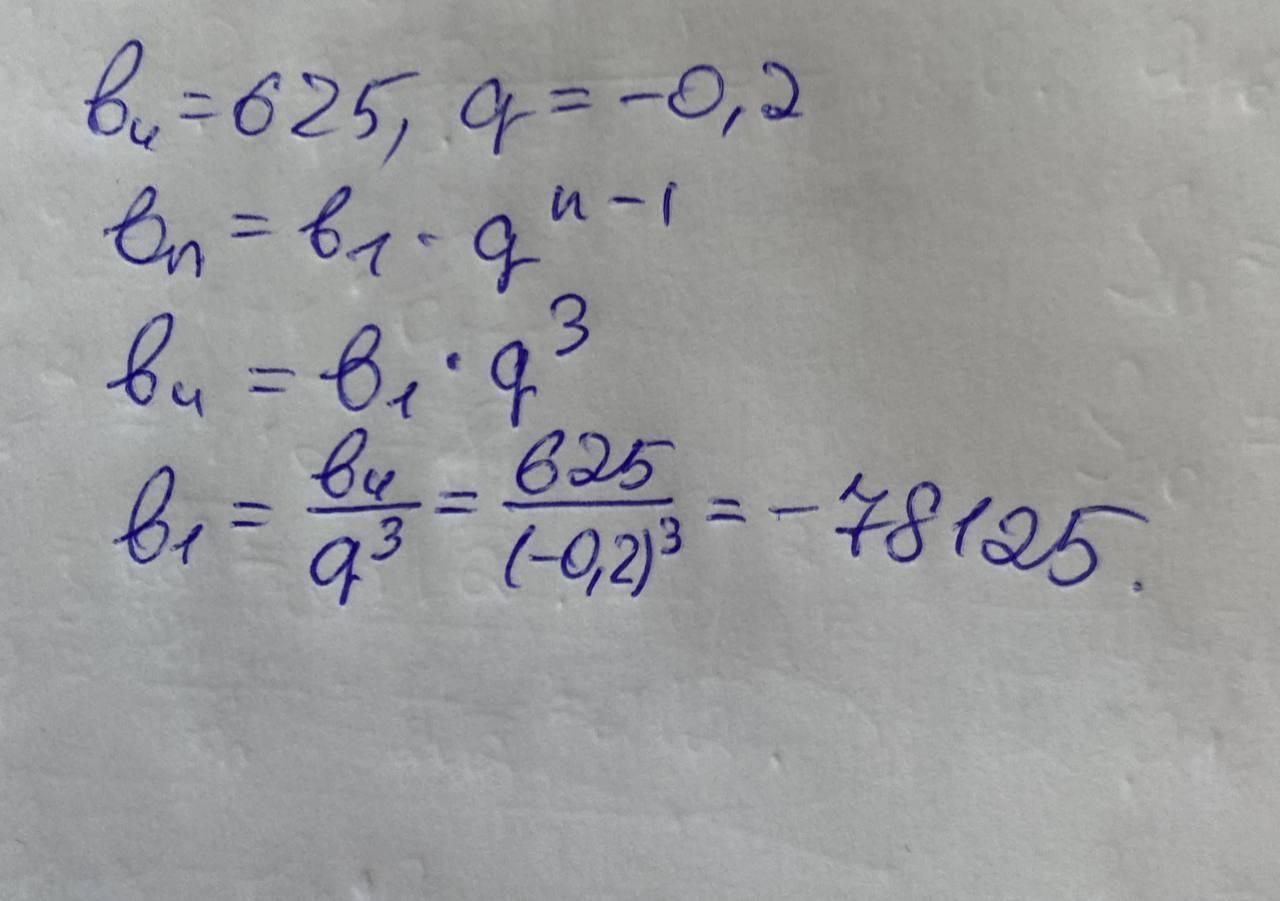 b₄ = 625, q = -0,2
bₙ = b₁ · qⁿ⁻¹
b₄ = b₁ · q³
b₁ = b₄/q³ = 625/(-0,2)³ = -78125.